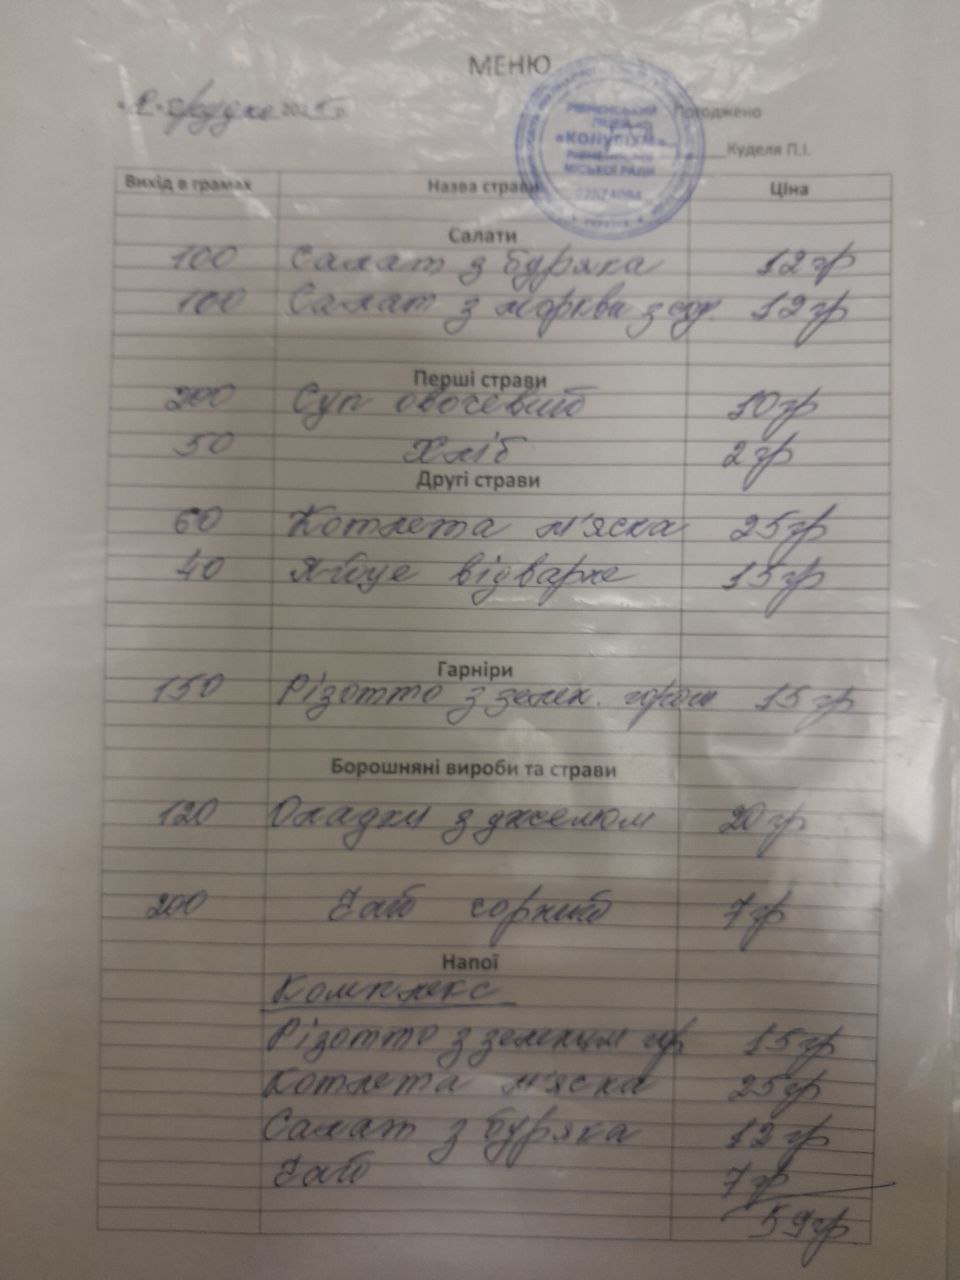 МЕНЮ
грудня 202
Погоджено
РІВНЕНСЬКИЙ
ЛІЦЕЙ
«КОЛУСІХМ»
МІСЬКОЇ РАДИ
Куделя П.І.
Вихід в грамах Назва страви Ціна
Салати
100 Салат з буряка 12 гр
100 Салат з моркви з 12 гр
Перші страви
200 Суп овочевий 10 гр
50 Хліб 2 гр
Другі страви
60 Котлета м'ясна 25 гр
40 Яйце відварне 15 гр
Гарніри
150 Різотто з зелен. горош 15 гр
Борошняні вироби та страви
120 Оладки з джемом 20 гр
200 Чай чорний 7 гр
Напої
Комплекс
Різотто з зеленим гор 15 гр
Котлета м'ясна 25 гр
Салат з буряка 12 гр
Чай 7 гр
59 гр